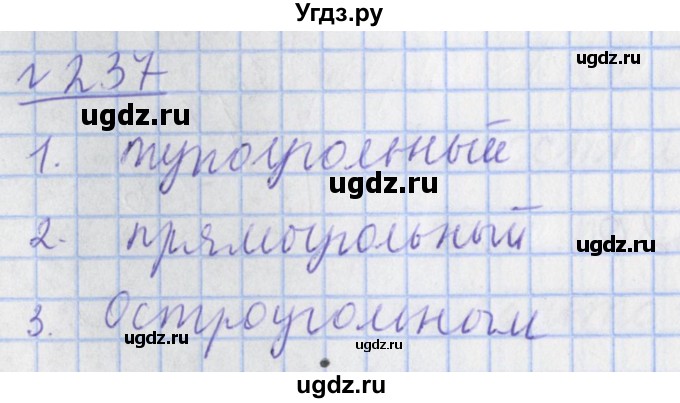 Угдз.ру
№ 237
ugdz.ru ugdz.ru
1. тупоугольный
ugdz.ru
2. прямоугольный
ugdz.ru
3. Остроугольным
ugdz.ru ugdz.ru
ugdz.ru